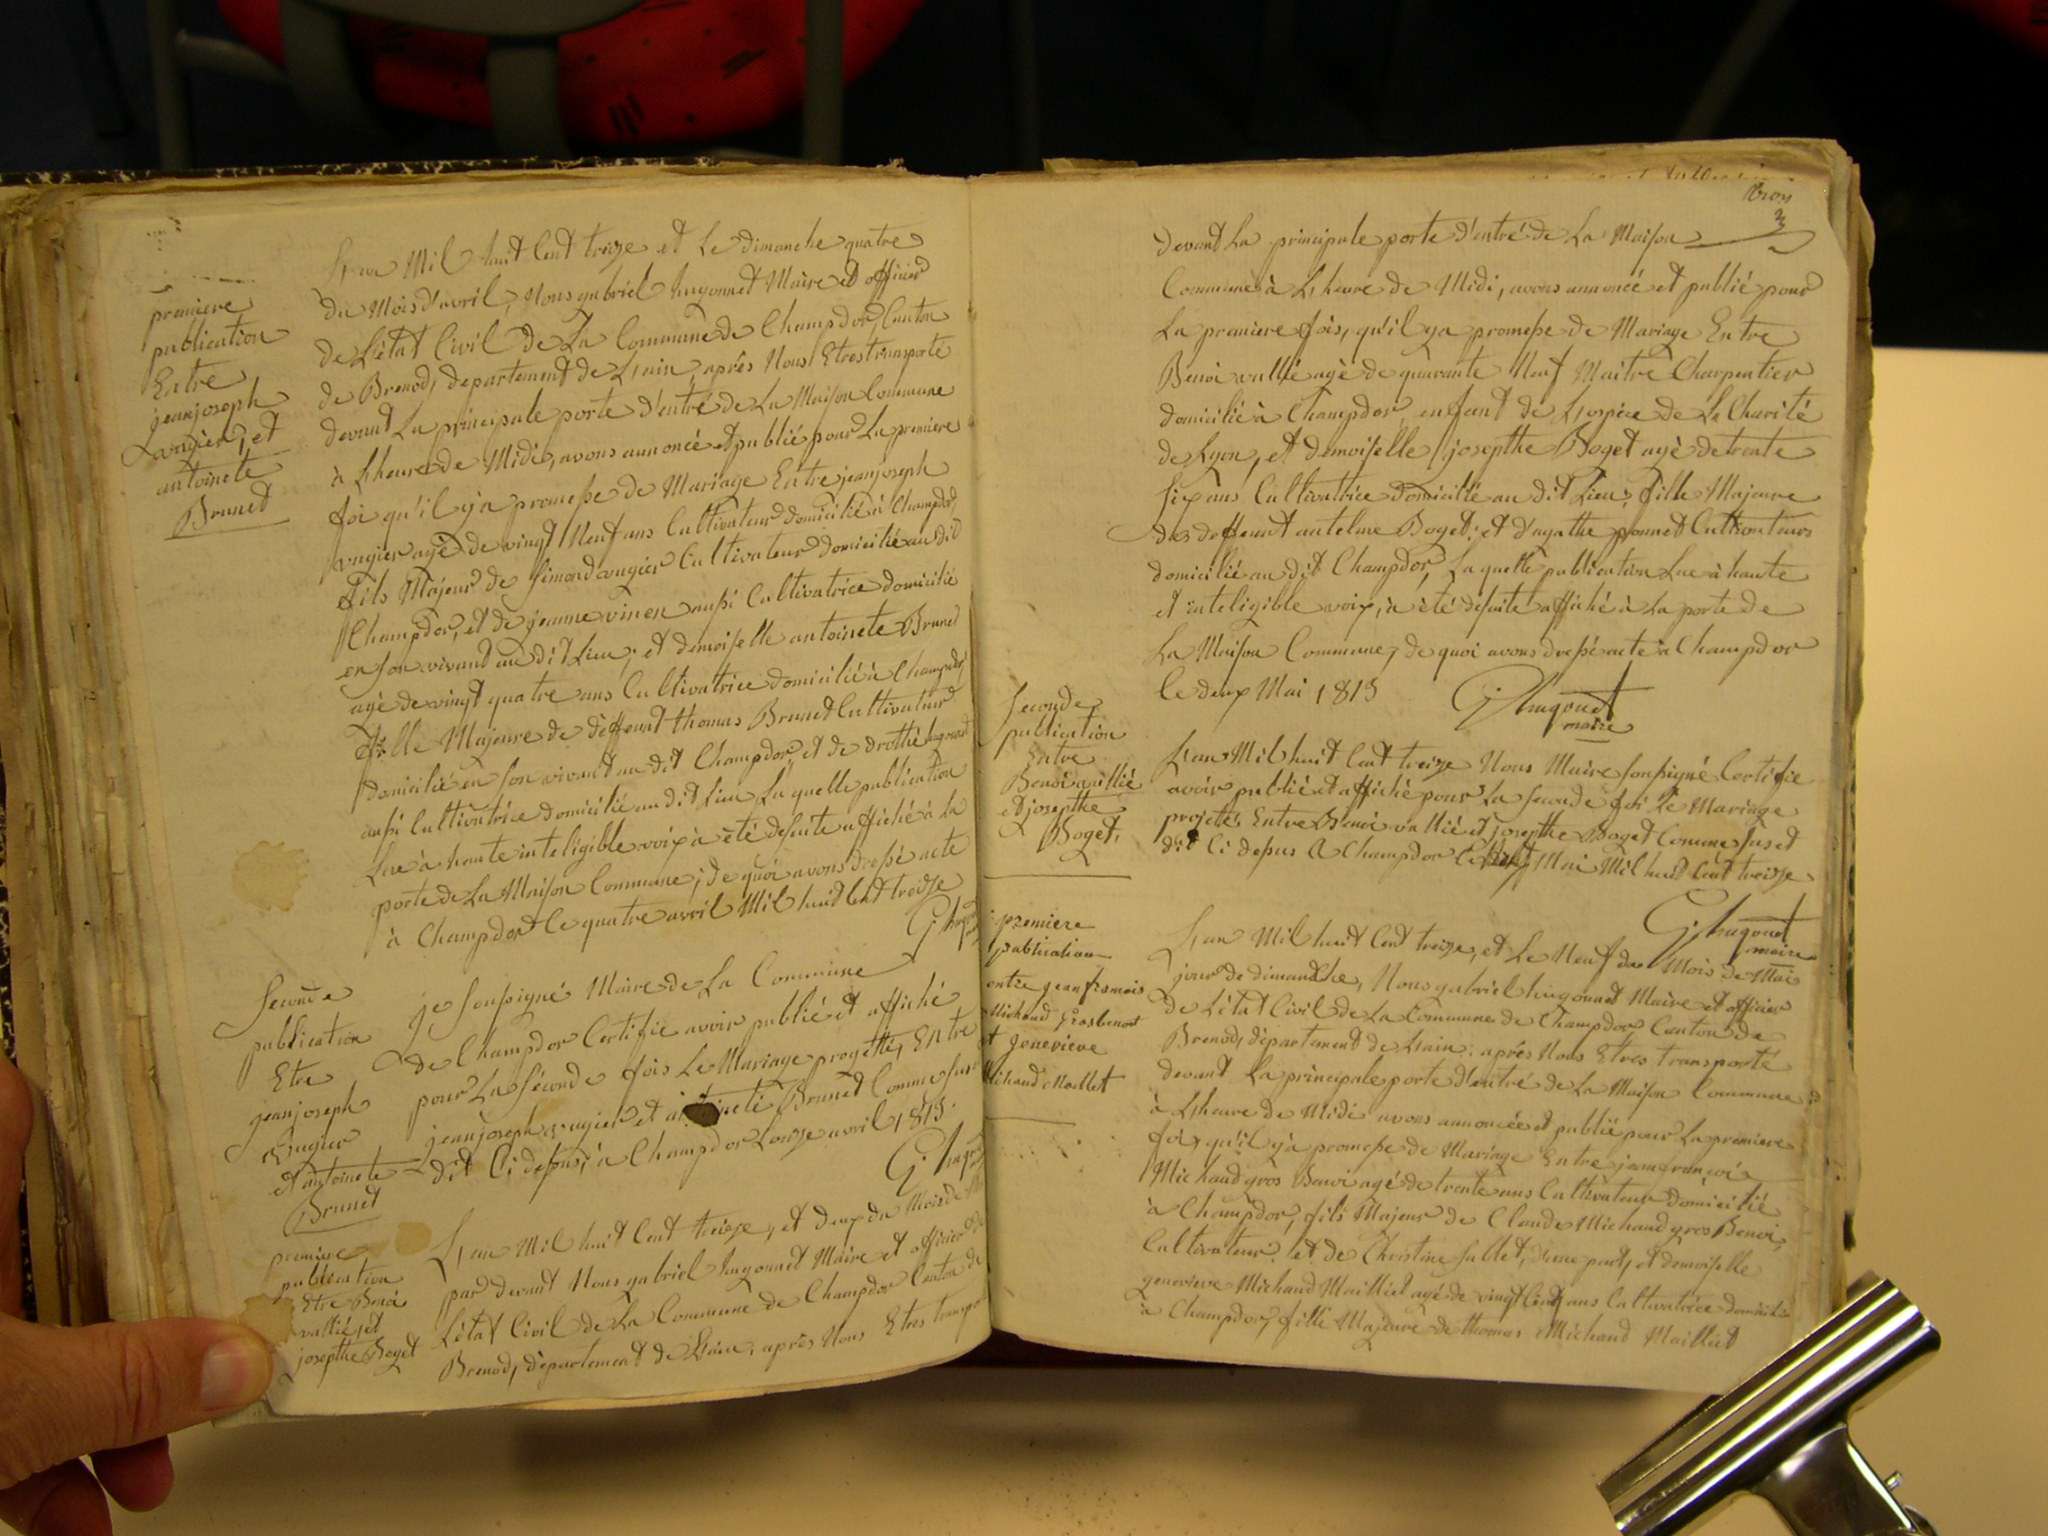 premiere
publication
Entre
jeanjoseph
et
antoinete
Brunet
L'an Mil huit Cent treize et Le dimanche quatre
du Mois d'avril, Nous gabriel hugonnet Maire et officier
de L'état Civil de La Commune de Champdor, Canton
de Brenod, departement de L'ain, aprés Nous Etres transporté
devant La principale porte d'entré de La Maison Commune
à L'heure de Midi, avons annoncé et publié pour La premiere
foi qu'il y'a promesse de Mariage Entre jeanjoseph
augier agé de vingt Neuf ans Cultivateur domicilié à Champdor,
fils Majeur de Simond augier Cultivateur domicilié au dit
Champdor, et de jeanne vinen aussi Cultivatrice domicilié
en son vivant au dit Lieu; et demoiselle antoinete Brunet
agé de vingt quatre ans Cultivatrice domicilié à Champdor,
fille Majeure de deffeunt thomas Brunet Cultivateur
domicilié en son vivant au dit Champdor, et de
aussi Cultivatrice domicilié au dit Lieu La quelle publication
Lue à haute inteligible voix à été desuite affiché à la
porte de La Maison Commune; de quoi avons dressé acte
à Champdor le quatre avril Mil huit Cent treize
Seconde
publication
Etre
jeanjoseph
augier
et antoinete
Brunet
je soussigné Maire de La Commune
de Champdor Certifie avoir publié et affiché
pour La séconde fois Le Mariage progetté, Entre
jeanjoseph augier et Brunet Comme sus
dit Ci dessus, à Champdor Lonze avril 1813.
premiere
publication
Etre Benoi
vallié, et
josepthe Boget
L'an Mil huit Cent treize, et deux du Mois de
par devant Nous gabriel hugonnet Maire et officier de
L'état Civil de La Commune de Champdor Canton de
Brenod, département de L'ain, aprés Nous Etres transpor
trois
3
devant La principale porte d'entré de La Maison
Commune à L'heure de Midi, avons annoncé et publié pour
La premiere fois, qu'il ya promesse de Mariage Entre
Benoi vallié agé de quarante Neuf Maitre Charpentier
domicilié à Champdor, enfant de L'ospice de La Charité
de Lyon, et demoiselle josepthe Boget agé de trente
six ans Cultivatrice domicilié au dit Lieu, fille Majeure
des deffeunt antelme Boget, et d'agathe ponnet Cultivateurs
domicilié au dit Champdor, La quelle publication Lue à haute
et inteligible voix, à été desuite affiché à La porte de
La Maison Commune, de quoi avons dressé acte à Champdor
le deux Mai 1813
G. hugonet
maire
Seconde
publication
Entre
Benoi vallié
et josepthe
Boget,
L'an Mil huit Cent treize Nous Maire soussigné Certifie
avoir publié et affiché pour La seconde foi le Mariage
projeté, Entre Benoi vallié et josepthe Boget Comme sus et
dit Ci dessus à Champdor le Mai Mil huit Cent treize
G. hugonet
maire
premiere
publication
entre jean francois
Michaud Grosbenoit
et genevieve
Michaud Maillet
L'an Mil huit Cent treize, et Le Neuf du Mois de Mai
jour de dimanche, Nous gabriel hugonnet Maire et officier
de L'état Civil de La Commune de Champdor, Canton de
Brenod, département de L'ain, aprés Nous Etres transporté
devant La principale porte d'entré de La Maison Commune
à L'heure de Midi avons annoncée et publié pour La premiere
foi, qu'il y'a promesse de Mariage Entre jeanfrançois
Michaud gros Benoi agé de trente ans Cultivateur domicilié
à Champdor, fils Majeur de Claude Michaud gros Benoi,
Cultivateur et de Christine Sublet, d'une part, et demoiselle
genevieve Michaud Mailliet agé de vingt ans Cultivatrice domicilié
à Champdor, fille Majeure de thomas Michaud Mailliet